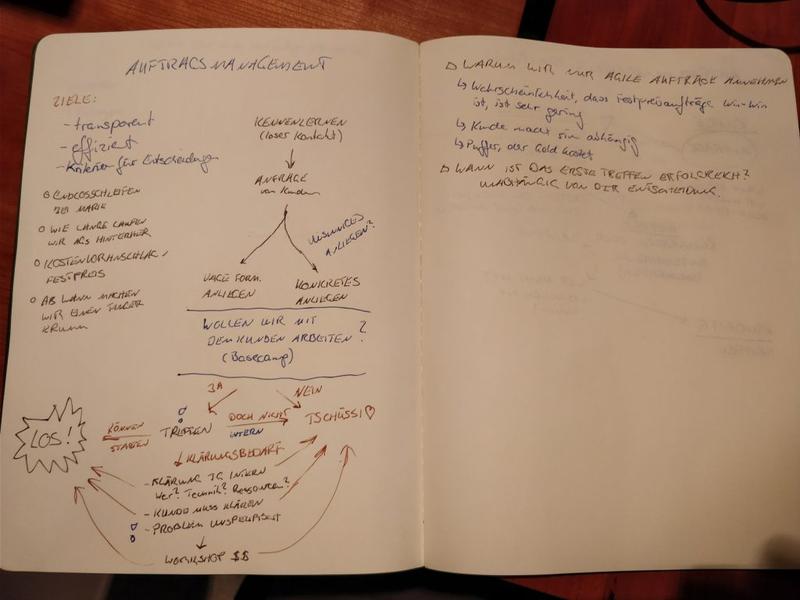 AUFTRAGSMANAGEMENT
ZIELE:
- transparent
- effizient
- Kriterien für Entscheidungen
o ENDLOSSCHLEIFEN
BEI MARIE
o WIE LANGE LAUFEN
WIR ALS HINTERHER
o KOSTENVORANSCHLAG /
FESTPREIS
o AB WANN MACHEN
WIR EINEN FINGER
KRUMM
KENNENLERNEN
(loser Kontakt)
ANFRAGE
von Kunden
ANLIEGEN?
VAGE FORM.
ANLIEGEN
KONKRETES
ANLIEGEN
WOLLEN WIR MIT
DEM KUNDEN ARBEITEN?
(Basecamp)
JA
NEIN
LOS!
KÖNNEN
STARTEN
TREFFEN
DOCH NICHT
INTERN
TSCHÜSSI ♡
KLÄRUNGSBEDARF
- KLÄRUNG IG INTERN
Wer? Technik? Ressourcen?
- KUNDE MUSS KLÄREN
- PROBLEM UNSPEZIFISCH
WORKSHOP $$
▷ WARUM WIR NUR AGILE AUFTRÄGE ANNEHMEN
↳ Wahrscheinlichkeit, dass Festpreisaufträge Win-Win
ist, ist sehr gering
↳ Kunde macht sich abhängig
↳ Puffer, der Geld kostet
▷ WANN IST DAS ERSTE TREFFEN ERFOLGREICH?
UNABHÄNGIG VON DER ENTSCHEIDUNG.